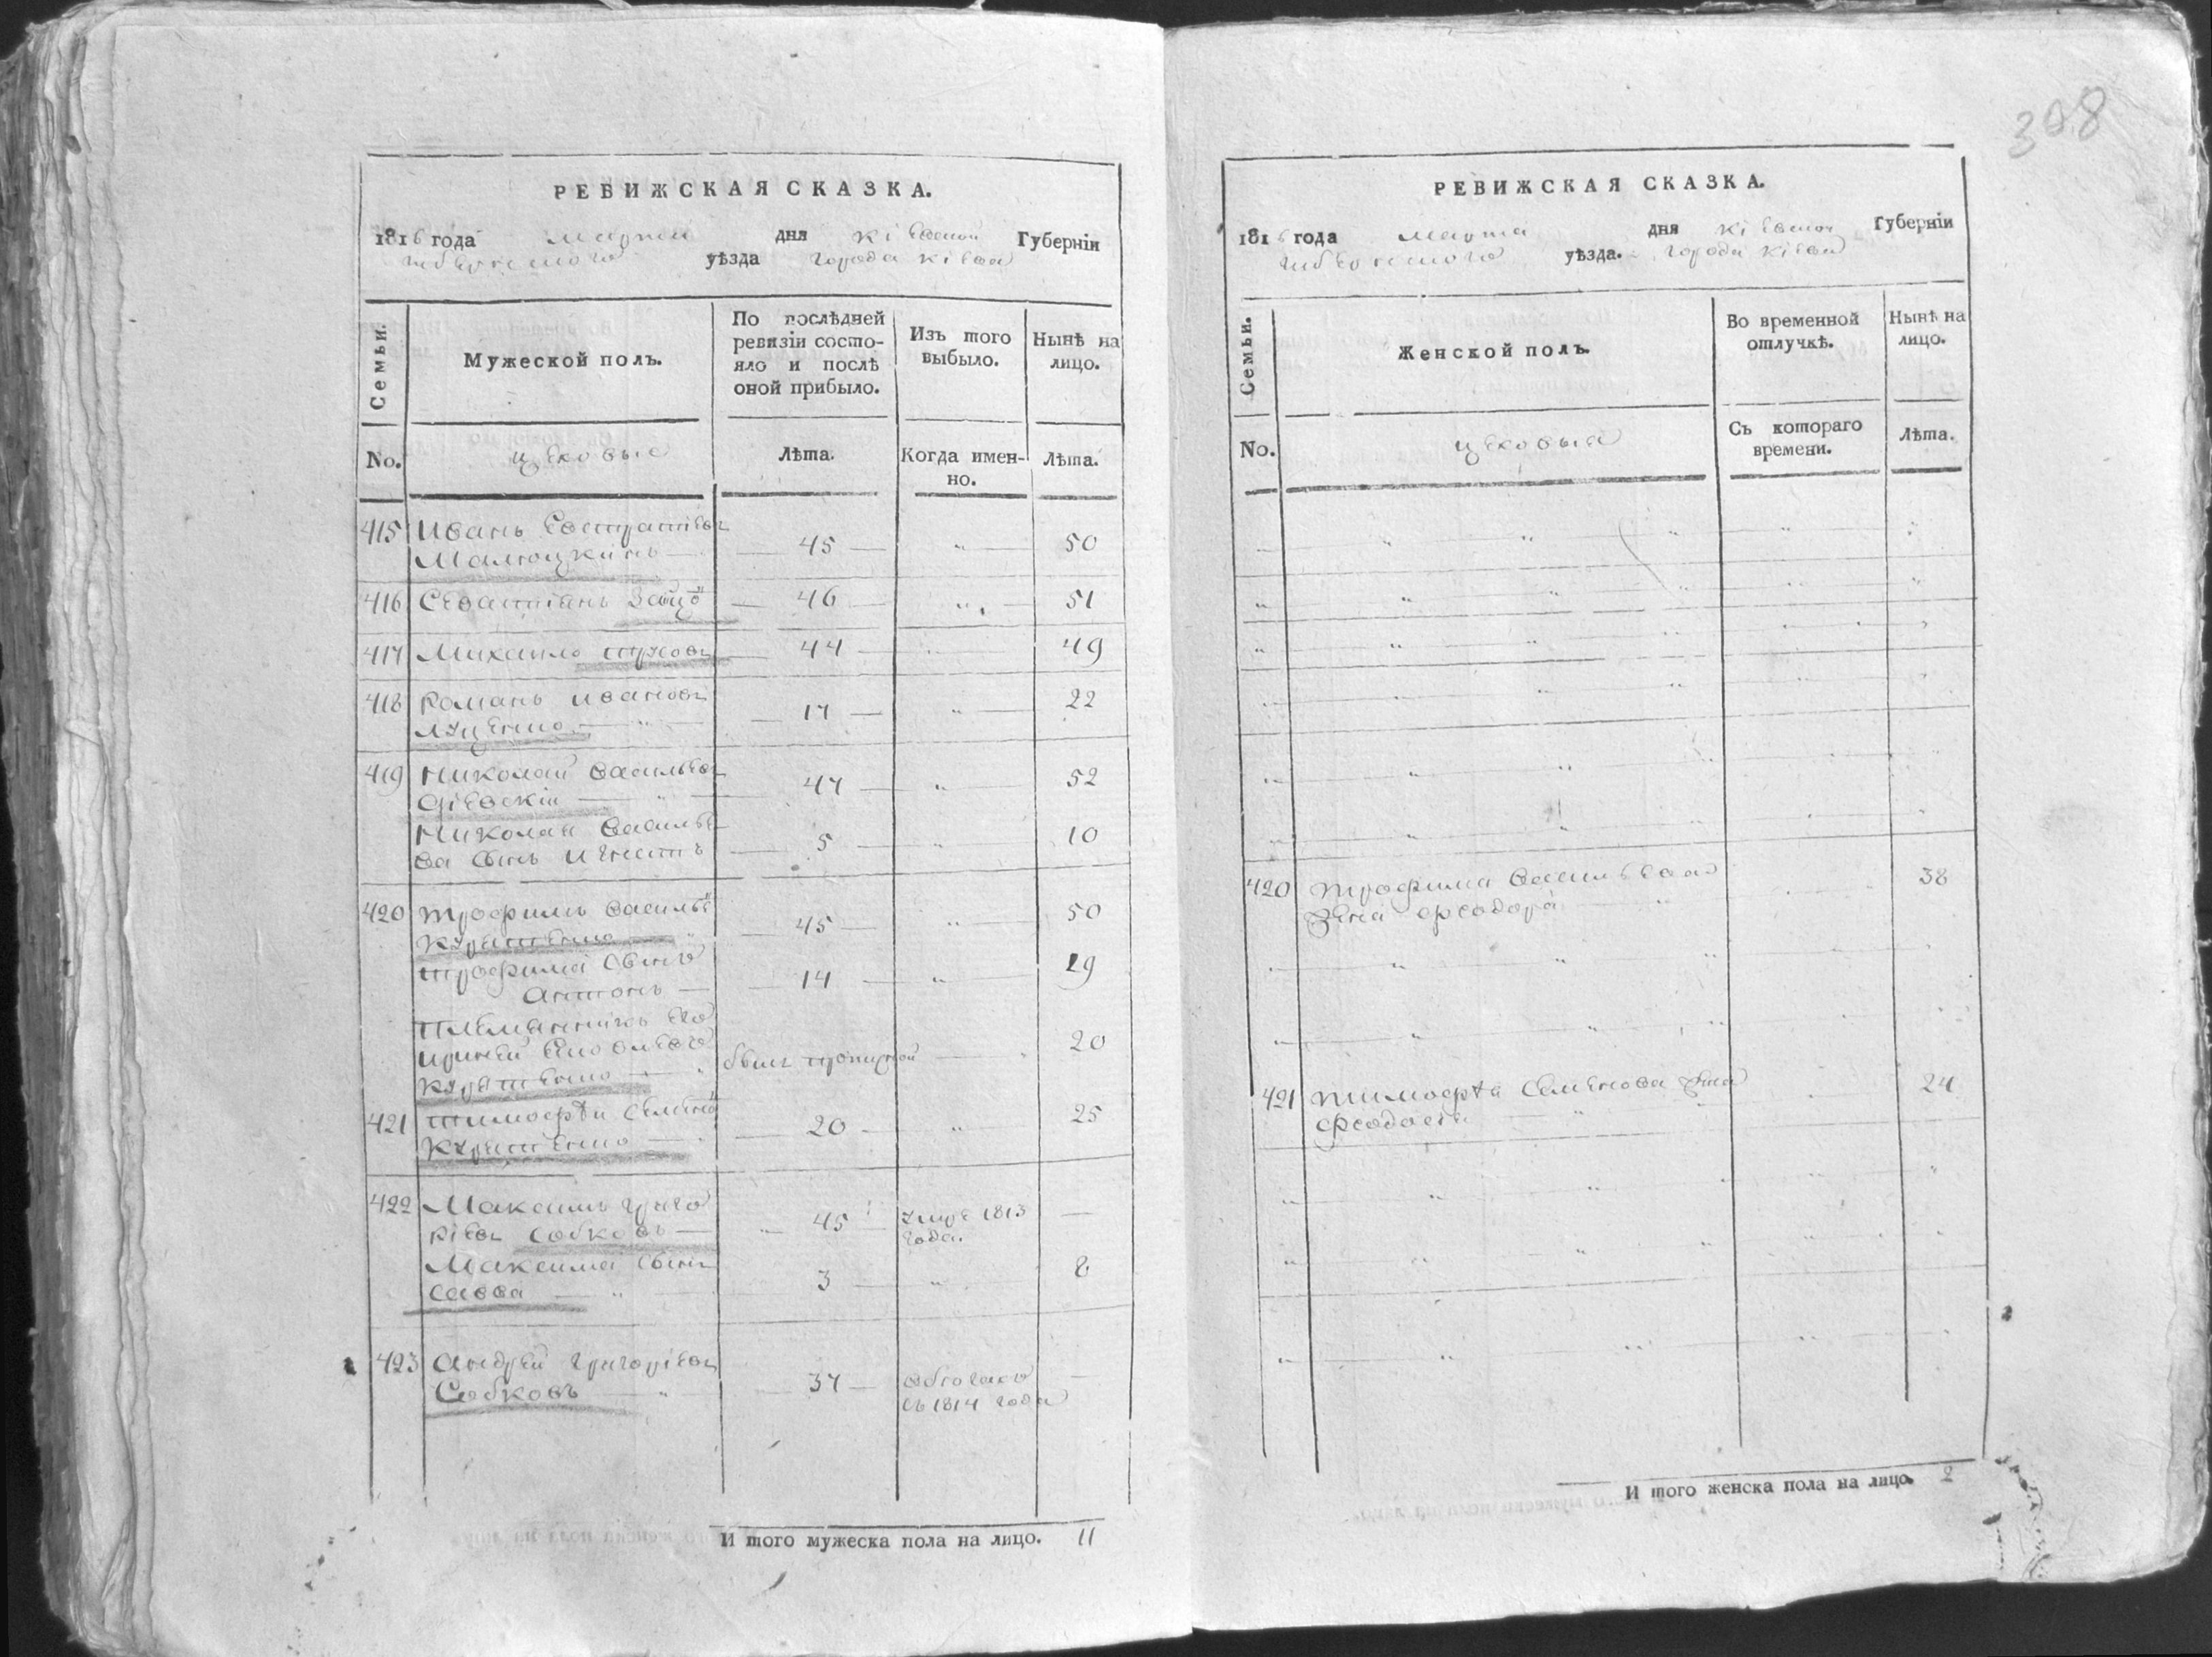 308
РЕВИЖСКАЯ СКАЗКА.
1816 года марта дня Кіевской Губерніи
уѣзда города Кіева
Семьи.
Мужеской полъ.
По послѣдней
ревизіи состо-
яло и послѣ
оной прибыло.
Изъ того
выбыло.
Нынѣ на
лицо.
No.
цеховые
Лѣта.
Когда имен-
но.
Лѣта.
415 Иванъ Евстратіевъ
45 " 50
416 Севастіянъ
46 " 51
417 Михайло
44 " 49
418 Романъ Ивановъ
Луценко 17 " 22
419 Николай Васильевъ
47 " 52
Николая Василье
ва сынъ Игнатъ 5 " 10
420 Трофимъ Василье
45 " 50
Трофима сынъ
Антонъ 14 " 19
Племянникъ его
былъ прописной 20
421 Тимофѣй Семено
20 " 25
422 Максимъ Григо
ріевъ Собковъ 45 умре 1813
года.
Максима сынъ
Савва 3 " 8
423 Андрей Григоріевъ
Собковъ 37
съ 1814 года
И того мужеска пола на лицо. 11
РЕВИЖСКАЯ СКАЗКА.
1816 года марта дня Кіевской Губерніи
уѣзда. города Кіева
Семьи.
Женской полъ.
Во временной
отлучкѣ.
Нынѣ на
лицо.
No.
цеховые
Съ котораго
времени.
Лѣта.
420 Трофима Васильева
жена Феодора 38
421 Тимофѣя Семенова жена
Феодосія 24
И того женска пола на лицо. 2